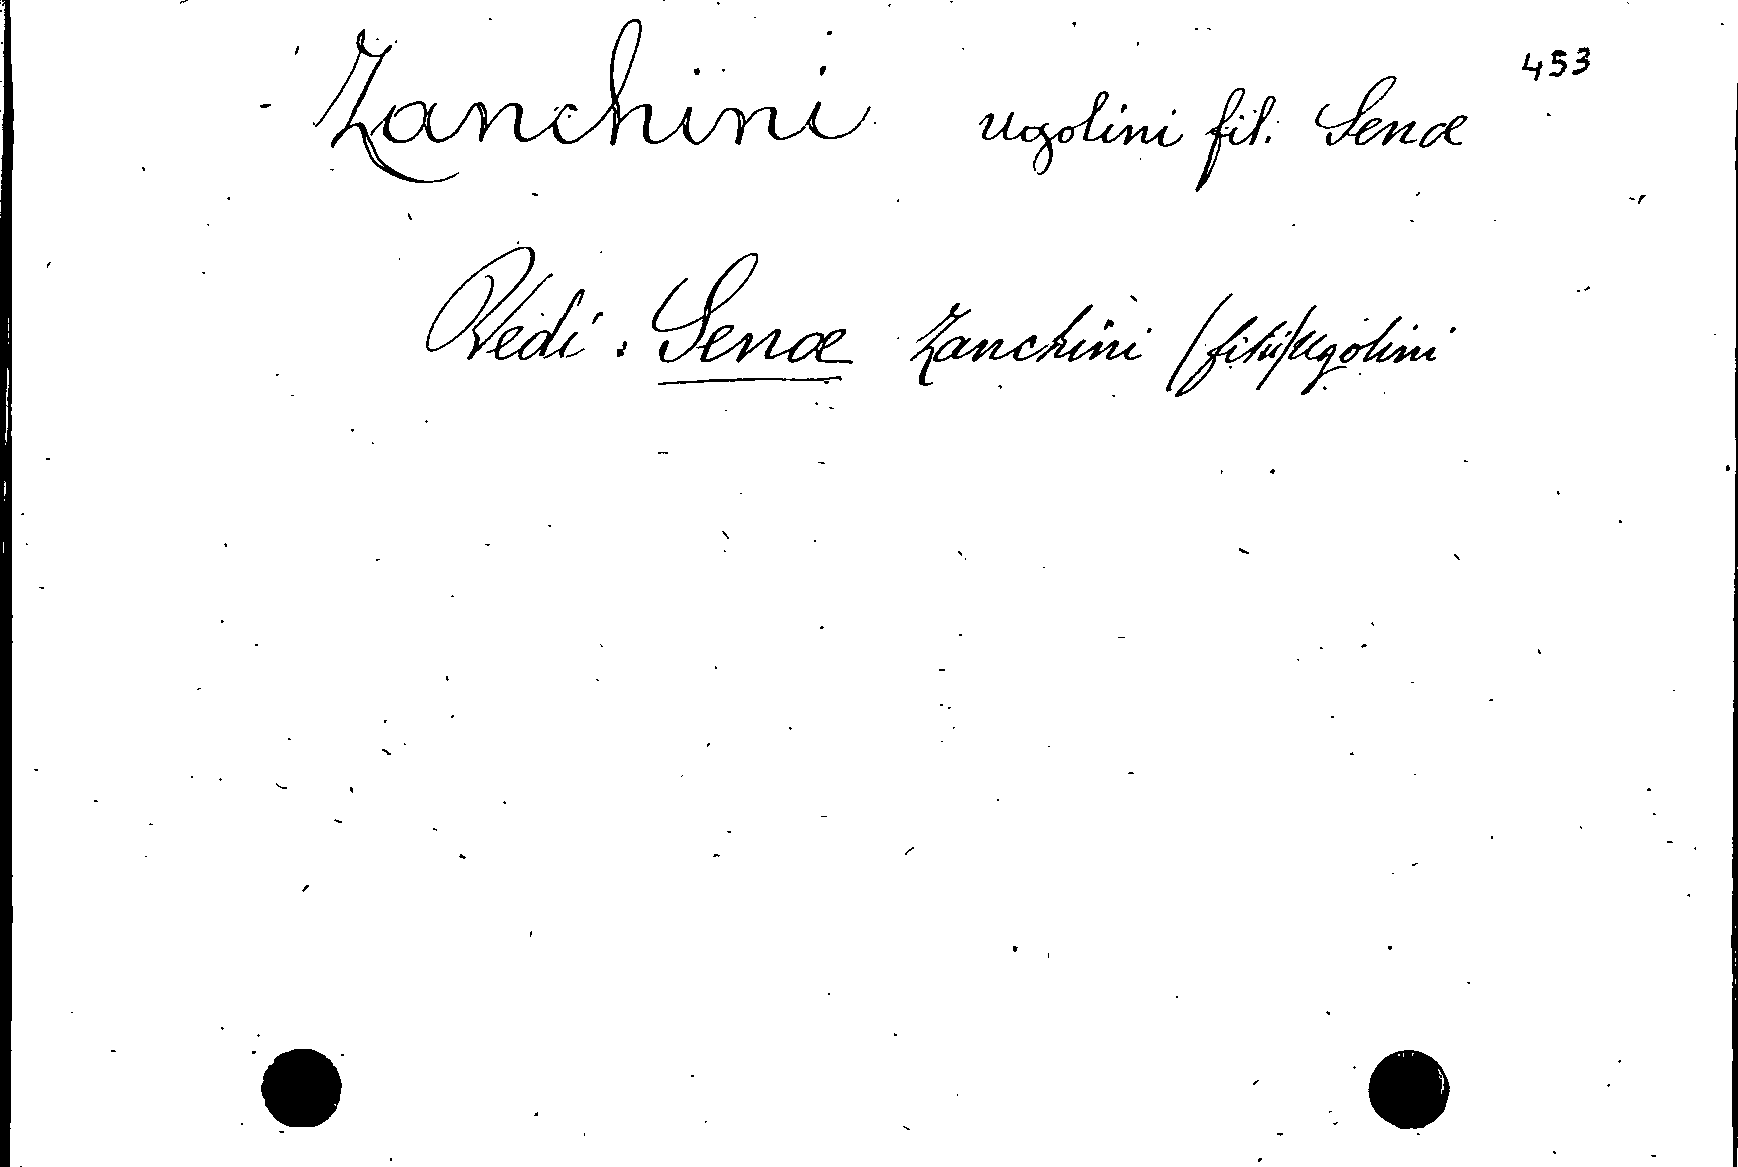 453
Zanchini Ugolini fil. Senœ
Vedi: Senœ Zanchini (filii) Ugolini